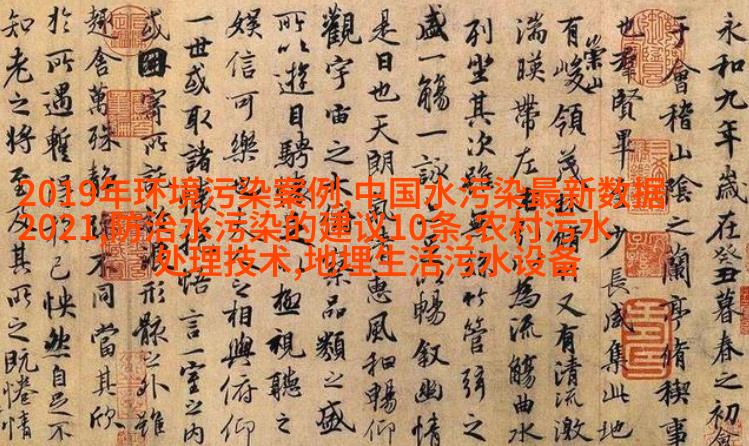 2019年环境污染案例,中国水污染最新数据
2021,防治水污染的建议10条,农村污水
处理技术,地理生活污水设备
永和九年歲在癸丑暮春之初會
于會稽山陰之蘭亭脩稧事
也群賢畢少長咸集此地
崇山
有峻領茂脩又有清流激
湍暎帶左右引以為流觴曲水
列坐其次雖竹管弦之
盛一觴一詠足以暢敘幽情
是日也天朗氣惠風和暢仰
觀宇宙之品類之盛
所以遊目騁足極視聽之
娛信可樂也之相與俯仰
一世或取諸懷抱悟言一室之內
或因寄所託形骸之外雖
趣舍萬殊靜不同當其欣
於所遇蹔得己怏然自足不
知老之將至及其所之既惓情